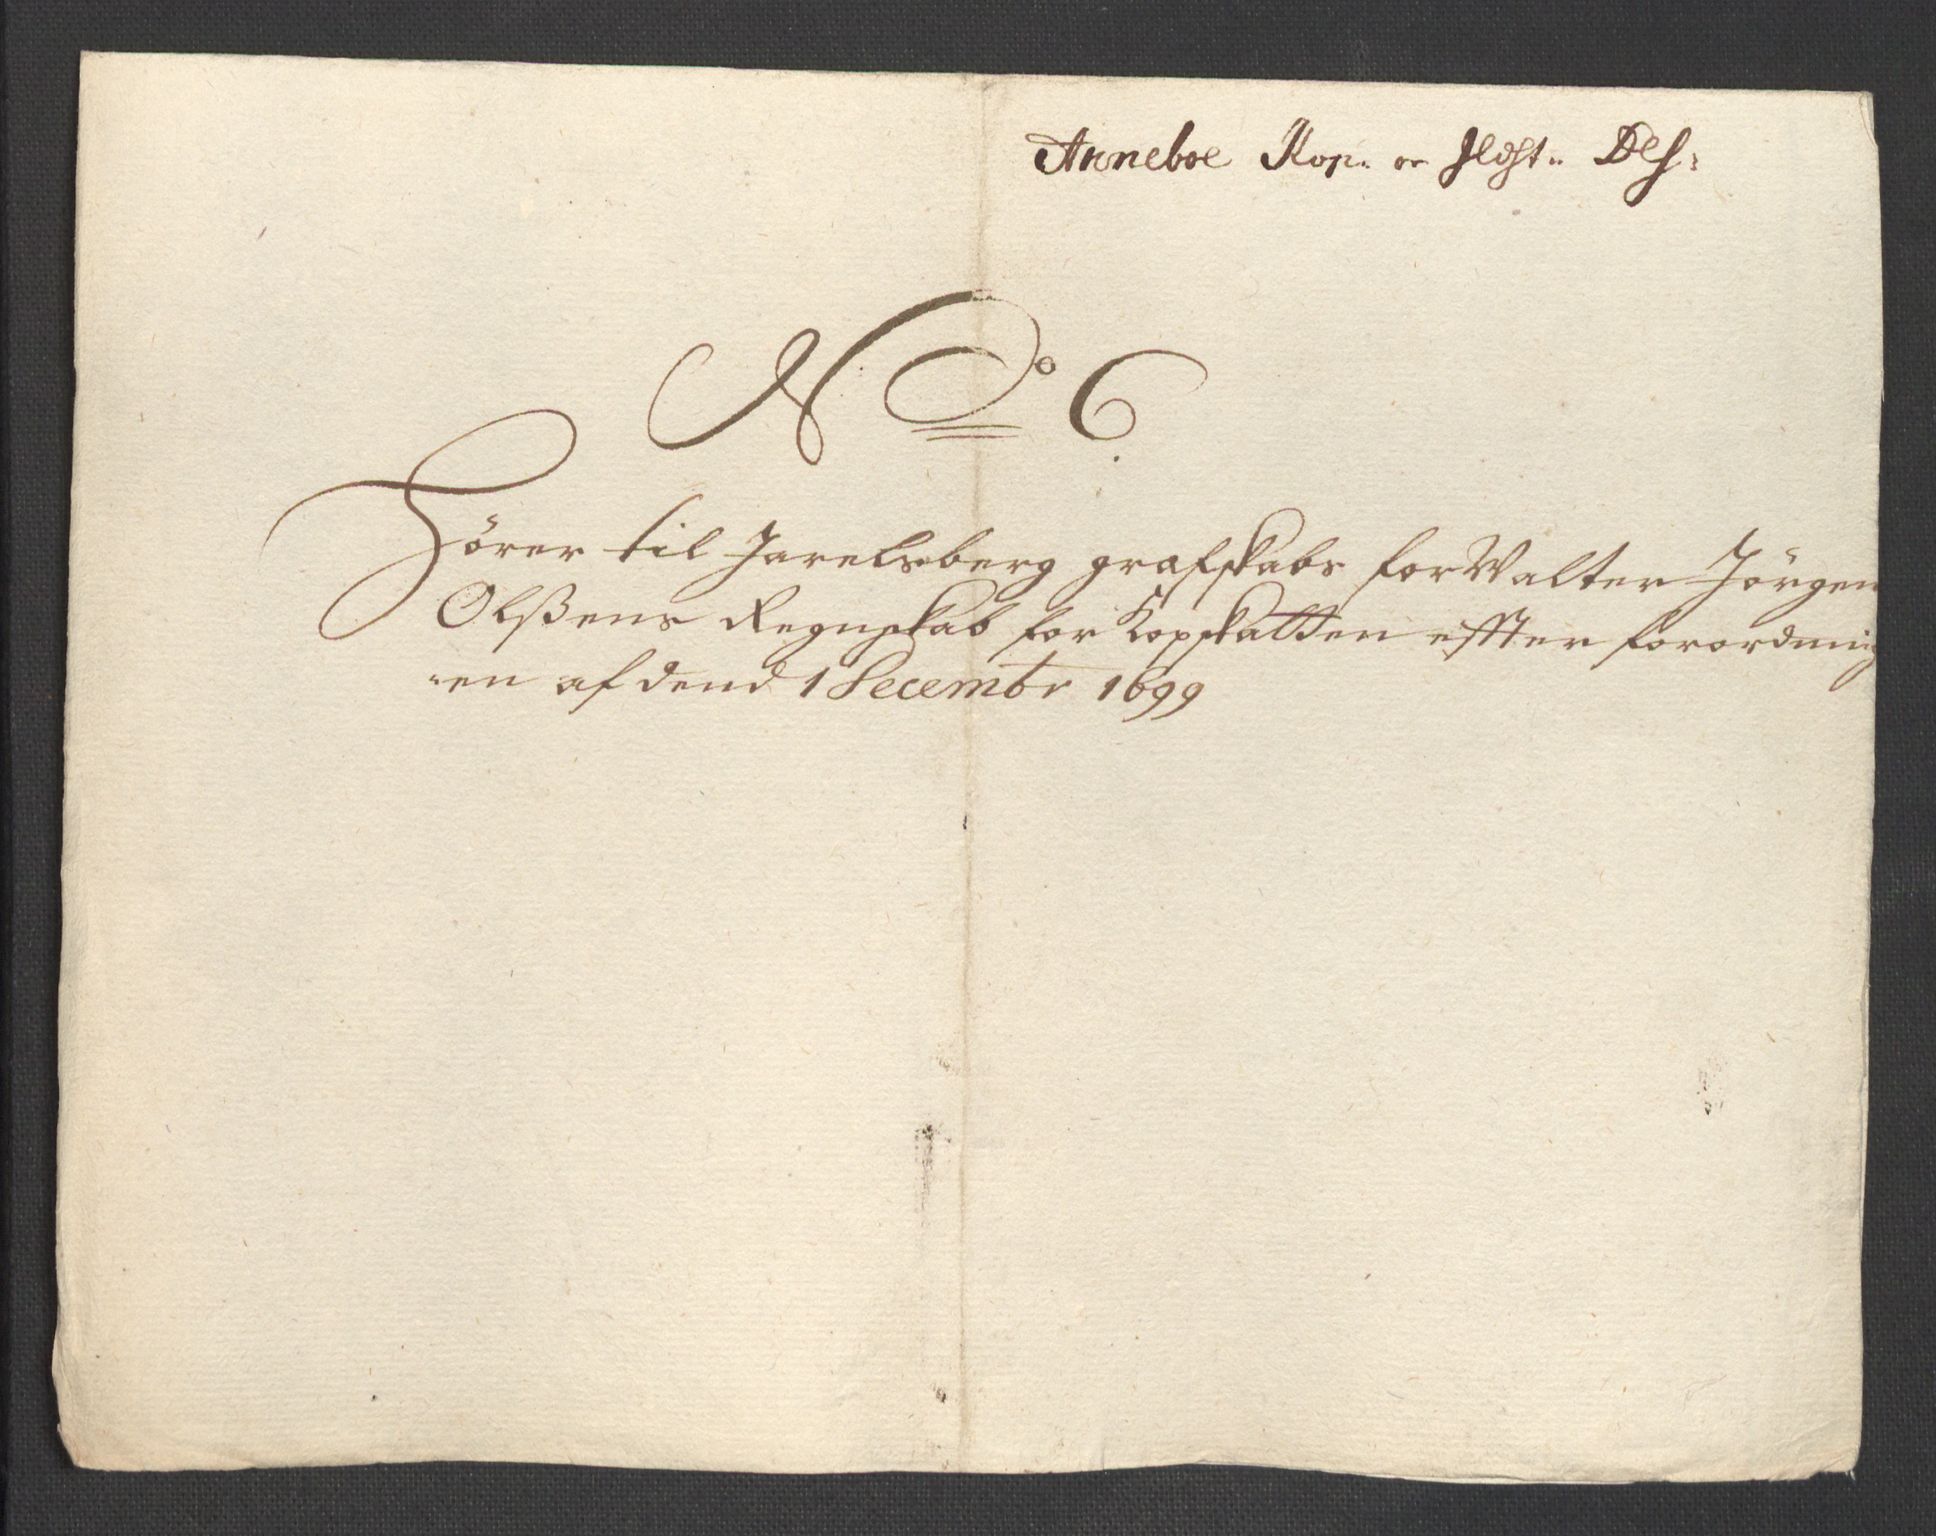 Anneboe Kop: 
No 6
Hörer til Jarelsberg grafskabs forWalter Jörgen
Olßens Regnskab for Kopskatten effter forordning
:en af dend 1 Decembr 1699